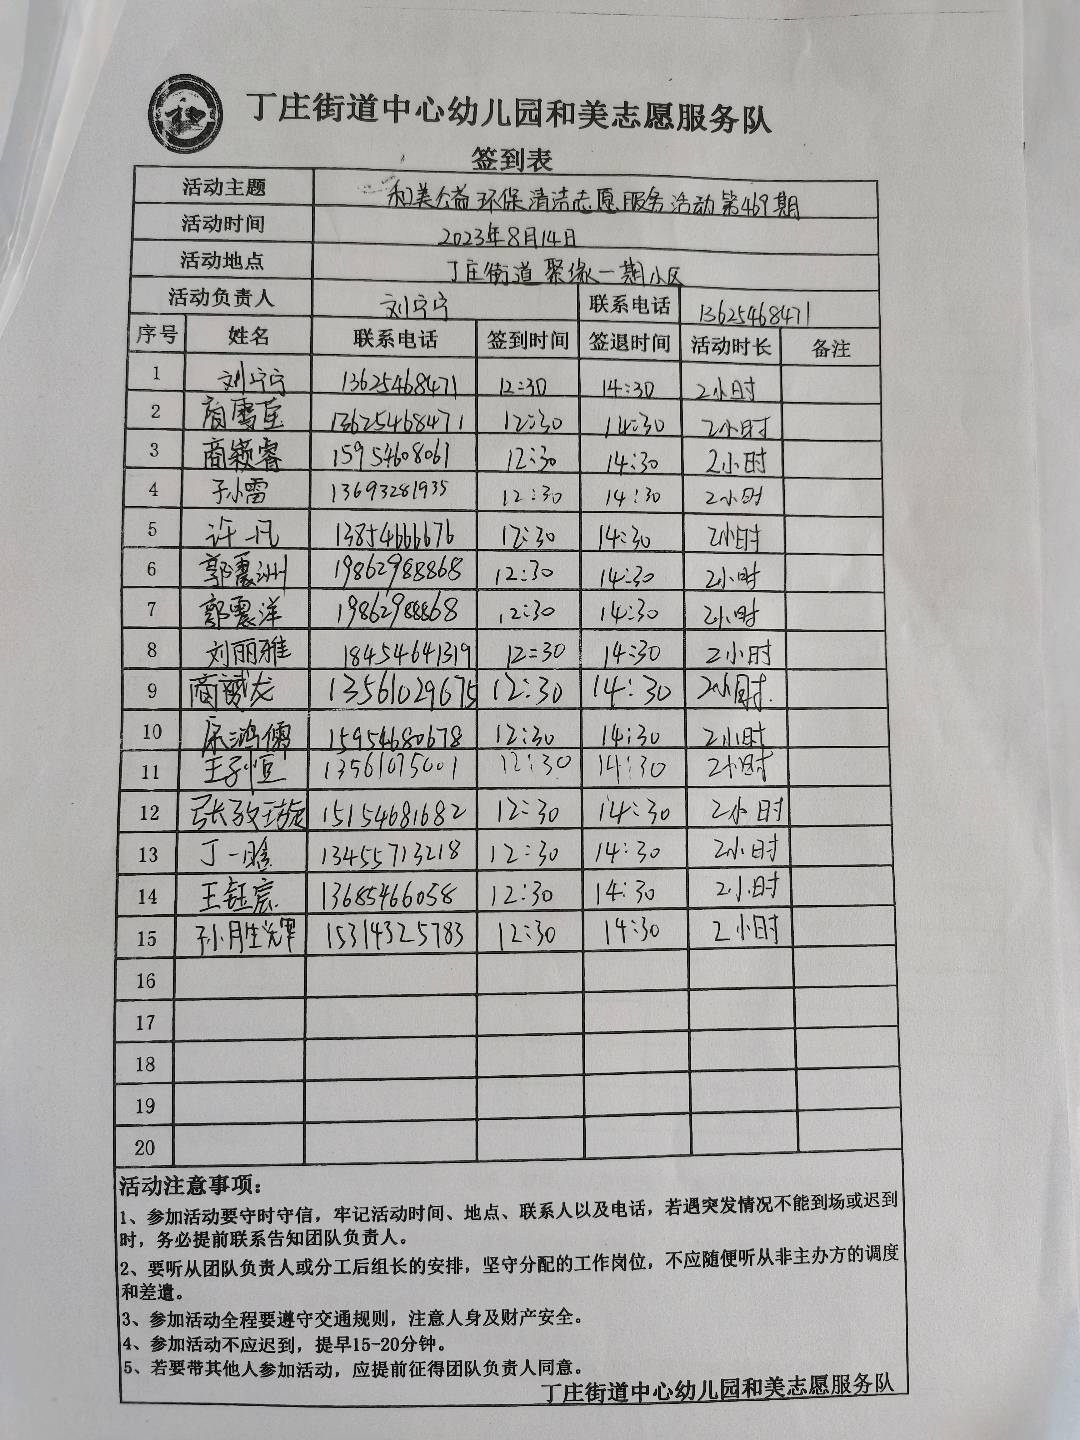 丁庄街道中心幼儿园和美志愿服务队
签到表
活动主题 和美公益环保清洁志愿服务活动第469期
活动时间 2023年8月14日
活动地点 丁庄街道聚缘一期小区
活动负责人 刘宁宁 联系电话 13625468471
序号 姓名 联系电话 签到时间 签退时间 活动时长 备注
1 刘宁宁 13625468471 12:30 14:30 2小时
2 商雪莲 13625468471 12:30 14:30 2小时
3 商颖睿 15954608061 12:30 14:30 2小时
4 孙小雷 13693281935 12:30 14:30 2小时
5 许一凡 13854666676 12:30 14:30 2小时
6 郭震洲 19862988868 12:30 14:30 2小时
7 郭震洋 19862988868 12:30 14:30 2小时
8 刘丽雅 18454641319 12:30 14:30 2小时
9 商斌龙 13561029675 12:30 14:30 2小时.
10 宋鸿儒 15954680678 12:30 14:30 2小时
11 王子恒 13561075001 12:30 14:30 2小时
12 张孜璇 15154681682 12:30 14:30 2小时
13 丁一晗 13455713218 12:30 14:30 2小时
14 王钰宸 13685466058 12:30 14:30 2小时
15 孙胜光 15314325783 12:30 14:30 2小时
16
17
18
19
20
活动注意事项：
1、参加活动要守时守信，牢记活动时间、地点、联系人以及电话，若遇突发情况不能到场或迟到
时，务必提前联系告知团队负责人。
2、要听从团队负责人或分工后组长的安排，坚守分配的工作岗位，不应随便听从非主办方的调度
和差遣。
3、参加活动全程要遵守交通规则，注意人身及财产安全。
4、参加活动不应迟到，提早15-20分钟。
5、若要带其他人参加活动，应提前征得团队负责人同意。
丁庄街道中心幼儿园和美志愿服务队